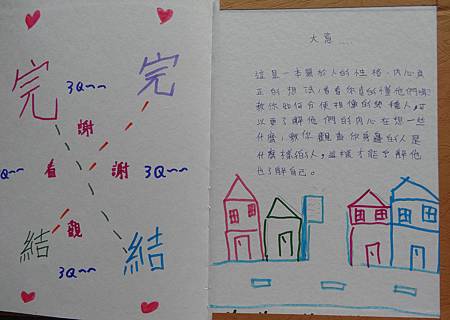 完 完
3Q~~
謝
3Q~~ 看 謝 3Q~~
觀
結 結
3Q~~
大意....
這是一本關於人的性格、內心真
正的想法,看看你真的懂他們嗎?
教你如何 的 種人,可
以更了解他們的內心在想一些
什麼,教你觀看你身邊的人是
什麼樣的人,這樣才能了解他
也了解自己。